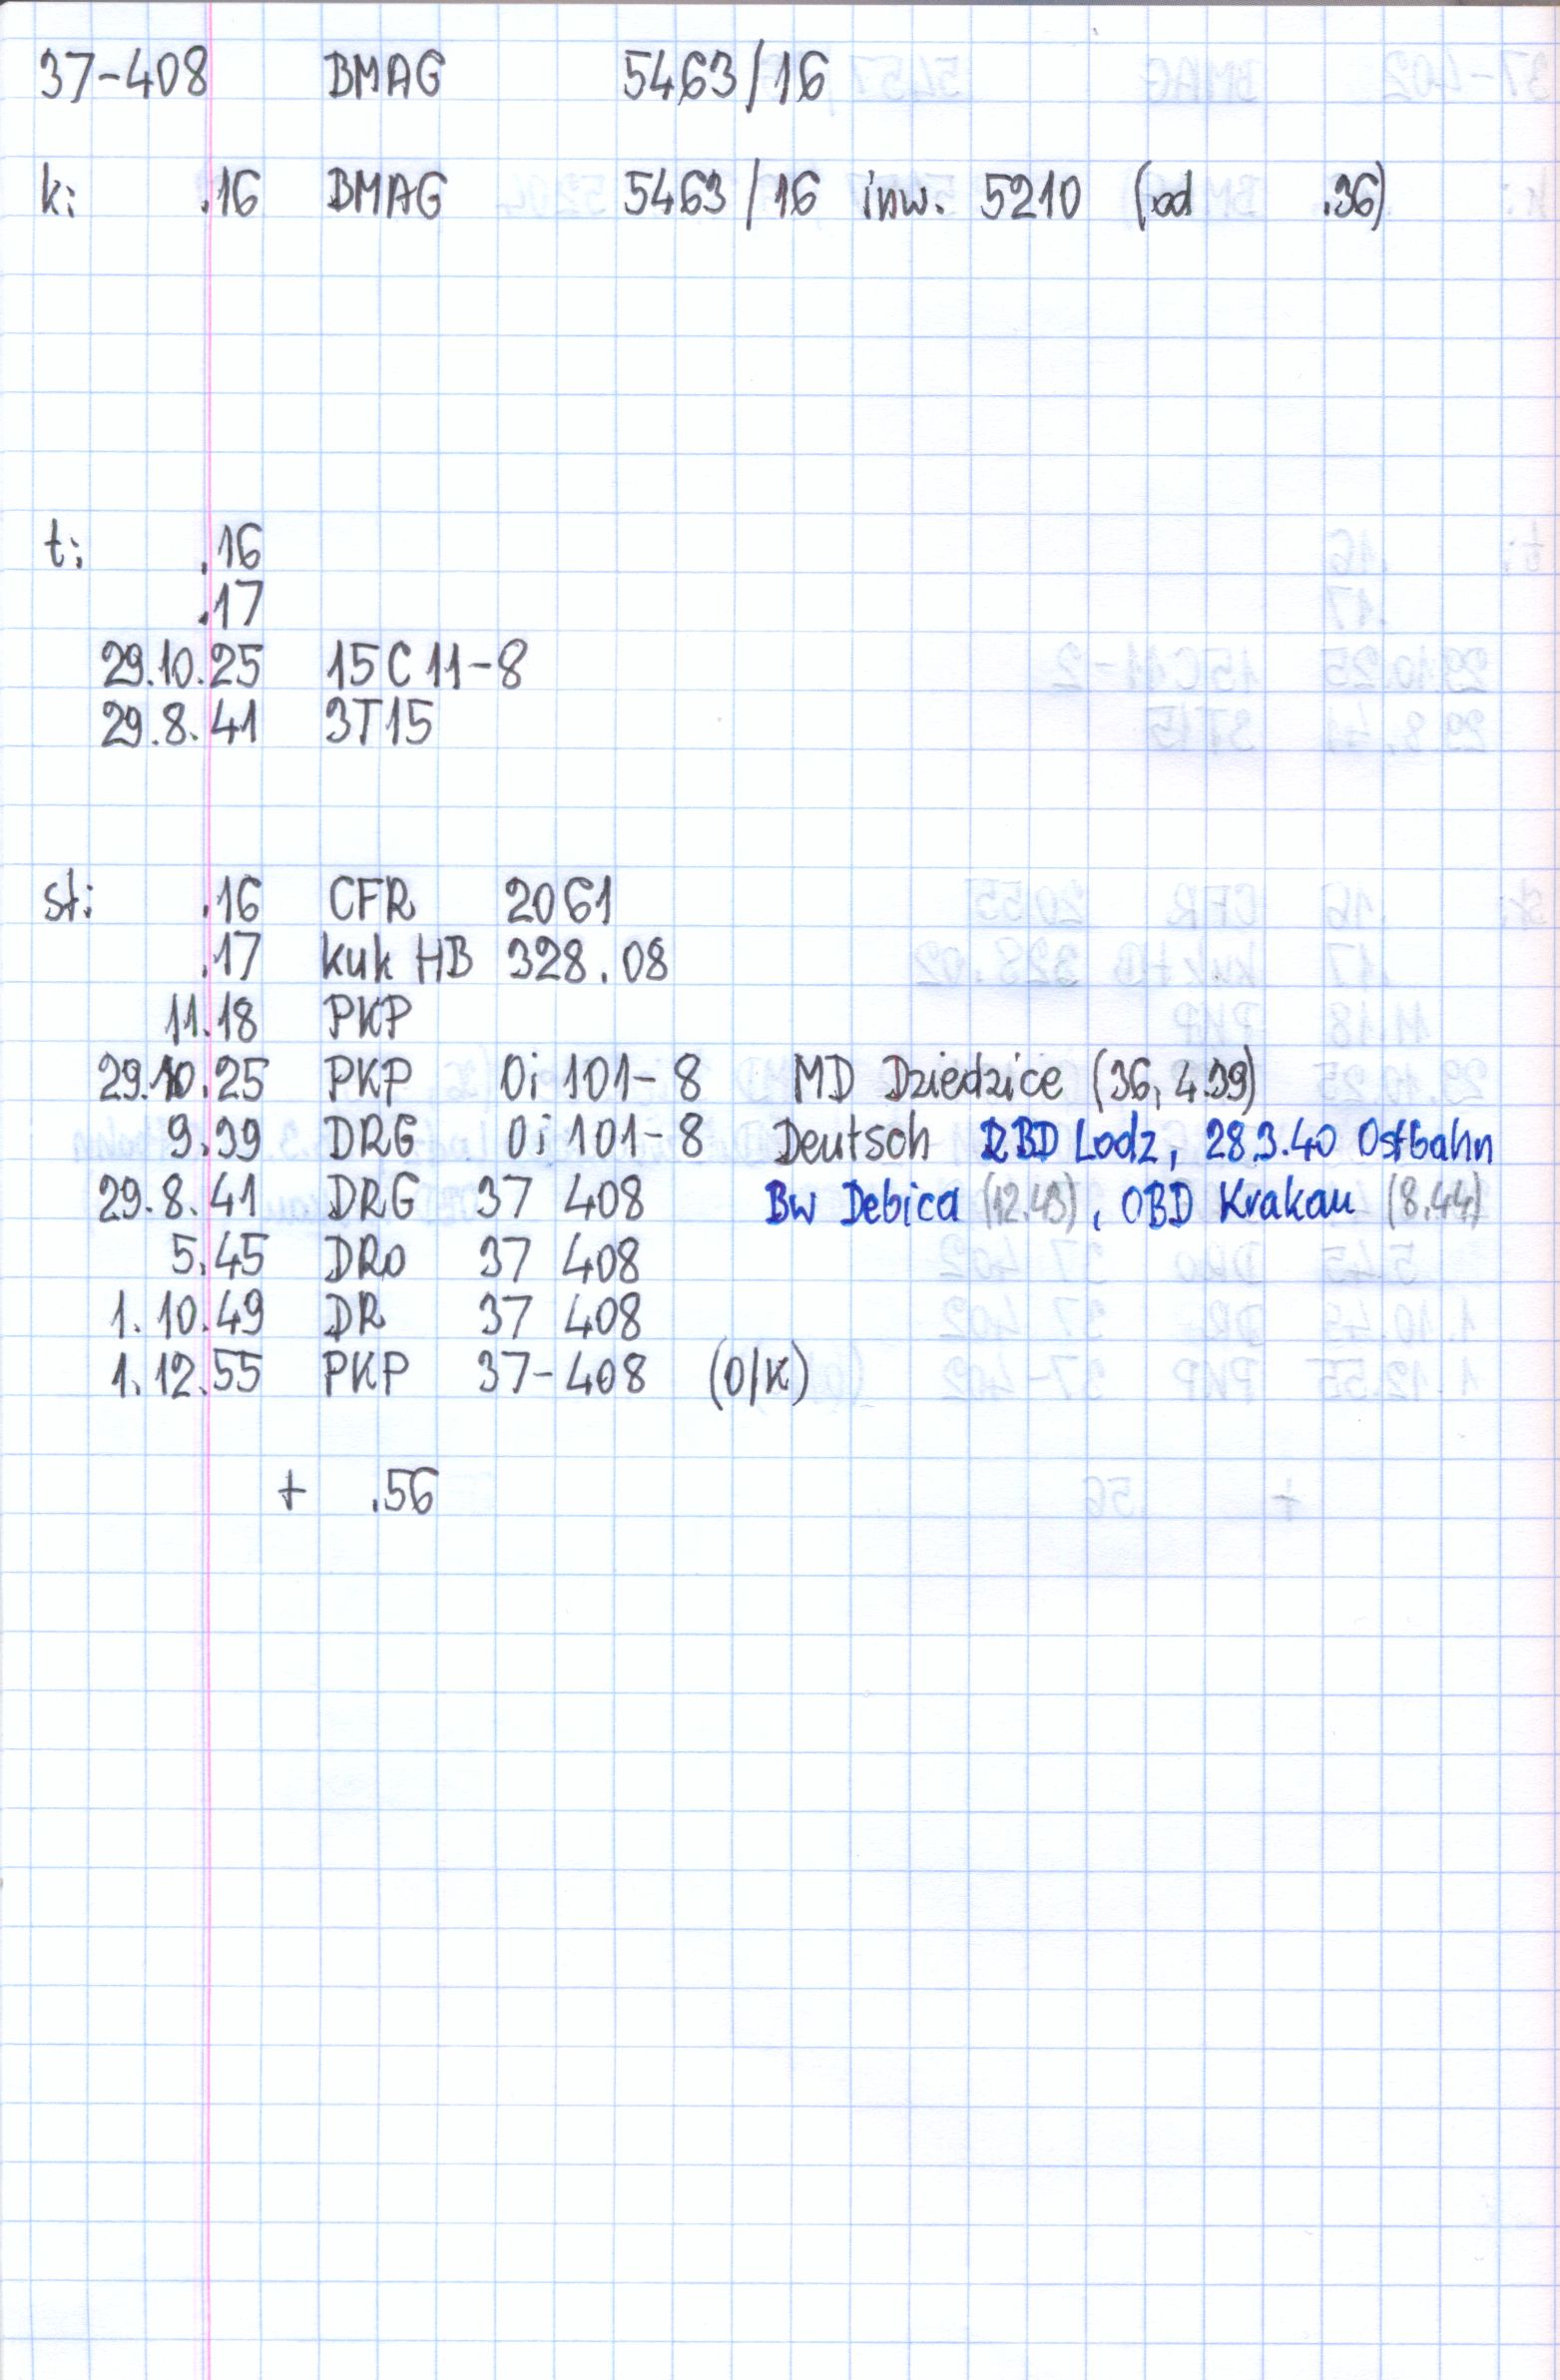 37-408 BMAG 5463/16
k: .16 BMAG 5463/16 inw. 5210 (od .36)
t: .16
.17
29.10.25 15C11-8
29.8.41 3T15
st: .16 CFR 2061
.17 kuk HB 328.08
11.18 PKP
29.10.25 PKP Oi 101-8 MD Dziedzice (36, 4.39)
9.39 DRG Oi 101-8 Deutsch RBD Lodz, 28.3.40 Ostbahn
29.8.41 DRG 37 408 Bw Debica (12.43), OBD Krakau (8.44)
5.45 DRo 37 408
1.10.49 DR 37 408
1.12.55 PKP 37-408 (O/K)
+ .56